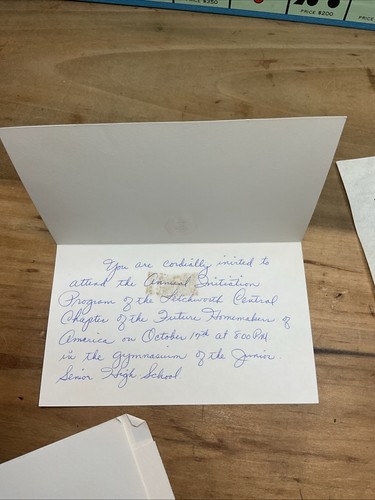 PRICE $350
PRICE $200
PRICE
You are cordially invited to
attend the Annual Initiation
Program of the Letchworth Central
Chapter of the Future Homemakers of
America on October 17th at 8:00 P.M.
in the Gymnasium of the Junior
Senior High School